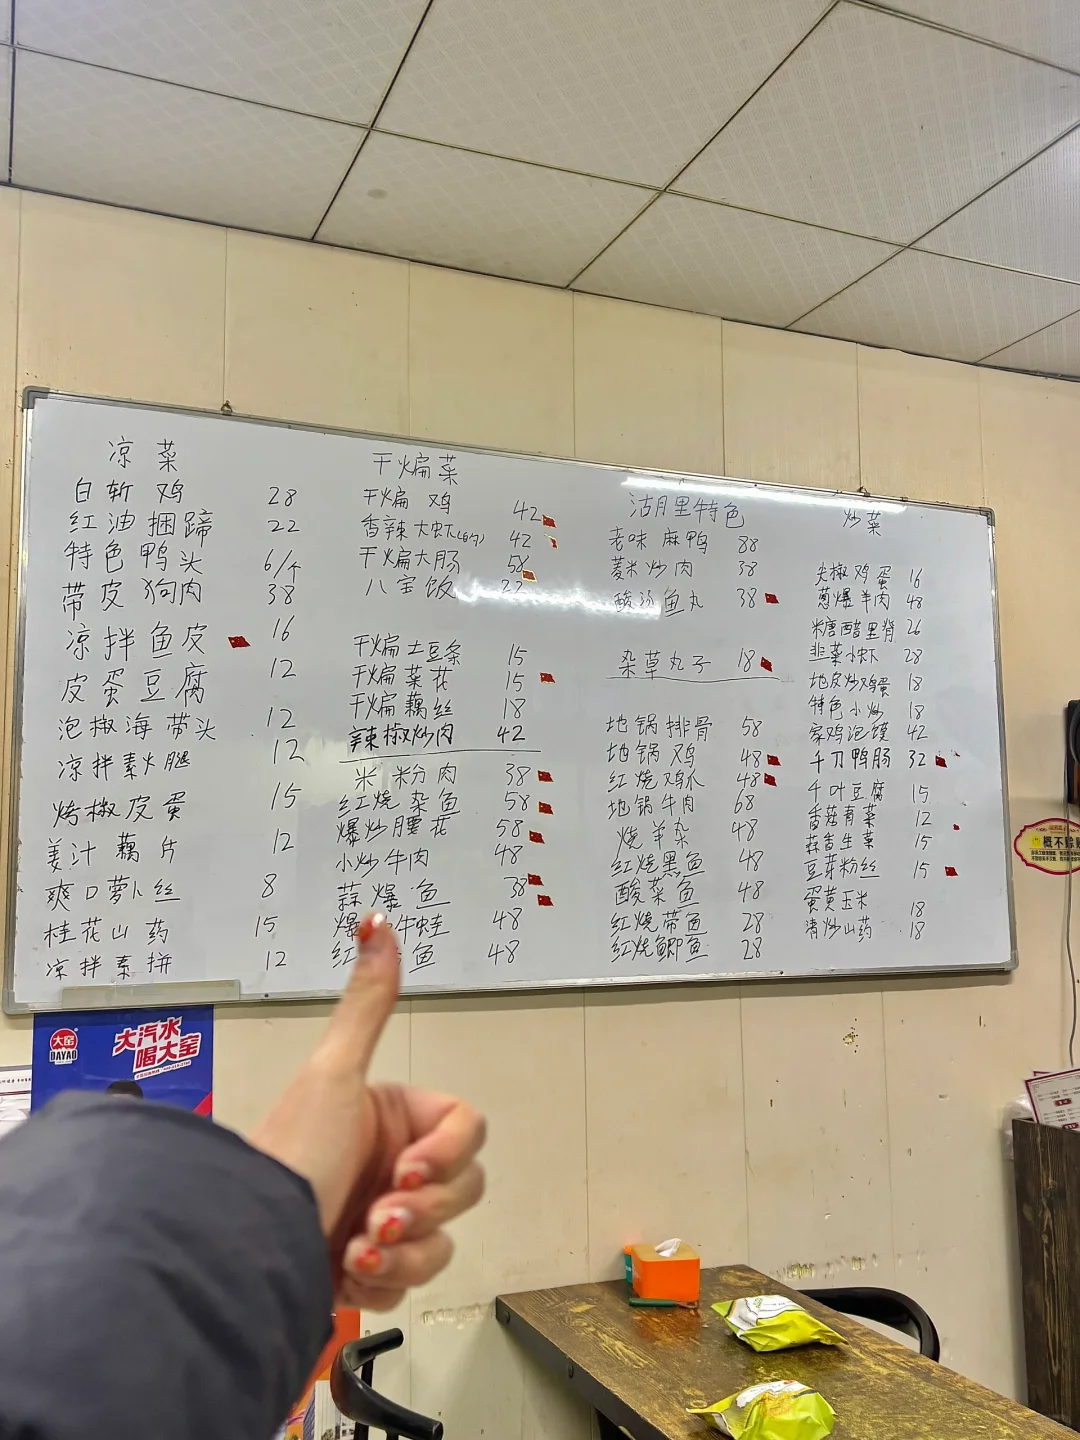 凉菜
白斩鸡 28
红油捆蹄 22
特色鸭头 6/个
带皮狗肉 38
凉拌鱼皮 16
皮蛋豆腐 12
泡椒海带头 12
凉拌素火腿 12
烤椒皮蛋 15
姜汁藕片 12
爽口萝卜丝 8
桂花山药 15
凉拌素拼 12
干煸菜
干煸鸡 42
香辣大虾 42
干煸大肠 58
八宝饭 22
干煸土豆条 15
干煸菜花 15
干煸藕丝 18
辣椒炒肉 42
米粉肉 38
红烧杂鱼 58
爆炒腰花 58
小炒牛肉 48
蒜爆鱼 38
爆牛蛙 48
红鱼 48
沽月里特色
老味麻鸭 88
菱米炒肉 38
酸汤鱼丸 38
杂草丸子 18
地锅排骨 58
地锅鸡 48
红烧鸡爪 48
地锅牛肉 68
烧羊杂 48
红烧黑鱼 48
酸菜鱼 48
红烧带鱼 28
红烧鲫鱼 28
炒菜
尖椒鸡蛋 16
葱爆羊肉 48
糖醋里脊 26
韭菜小虾 28
地皮炒鸡蛋 18
特色小炒 18
家鸡泡馍 42
千刀鸭肠 32
千叶豆腐 15
香菇青菜 12
蒜香生菜 15
豆芽粉丝 15
蛋黄玉米 18
清炒山药 18
大窑
DAYAO
大汽水
喝大窑
概不赊账